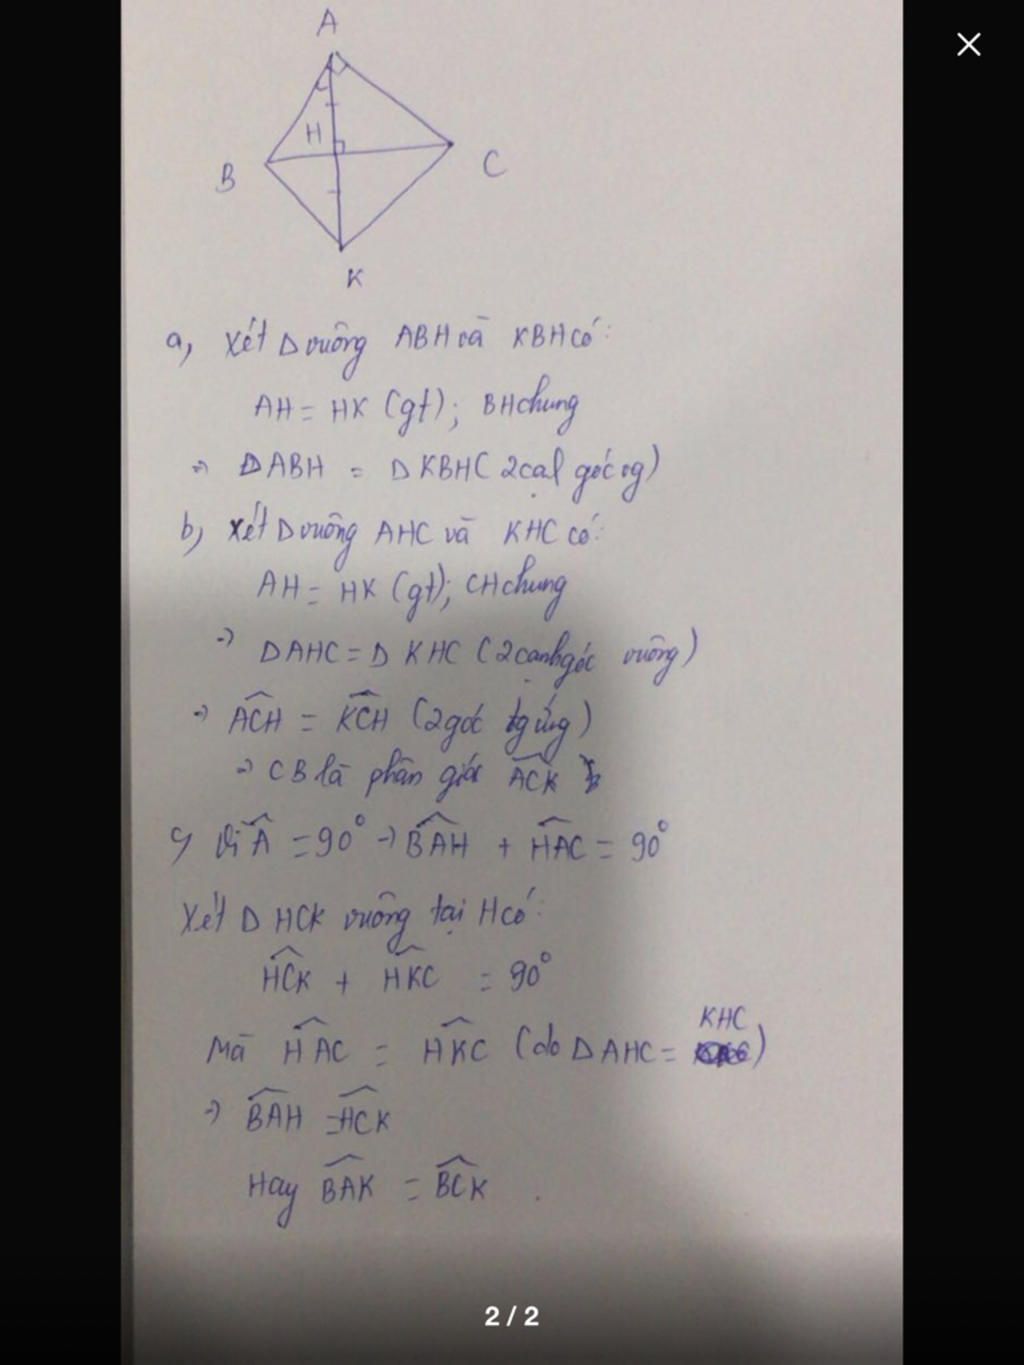 A
H
B
C
K
a, Xét Δ vuông ABH và KBH có:
AH = HK (gt); BH chung
⇒ ΔABH = ΔKBH ( 2 cạ góc vg)
b, Xét Δ vuông AHC và KHC có:
AH = HK (gt); CH chung
⇒ ΔAHC = Δ KHC ( 2 cạnh góc vuông)
⇒ ACH = KCH (2 góc tg ứng)
⇒ CB là phân giác ACK
c, Vì A = 90° ⇒ BAH + HAC = 90°
Xét Δ HCK vuông tại H có:
HCK + HKC = 90°
Mà HAC = HKC (do ΔAHC = KHC)
⇒ BAH = HCK
Hay BAK = BCK .
2 / 2